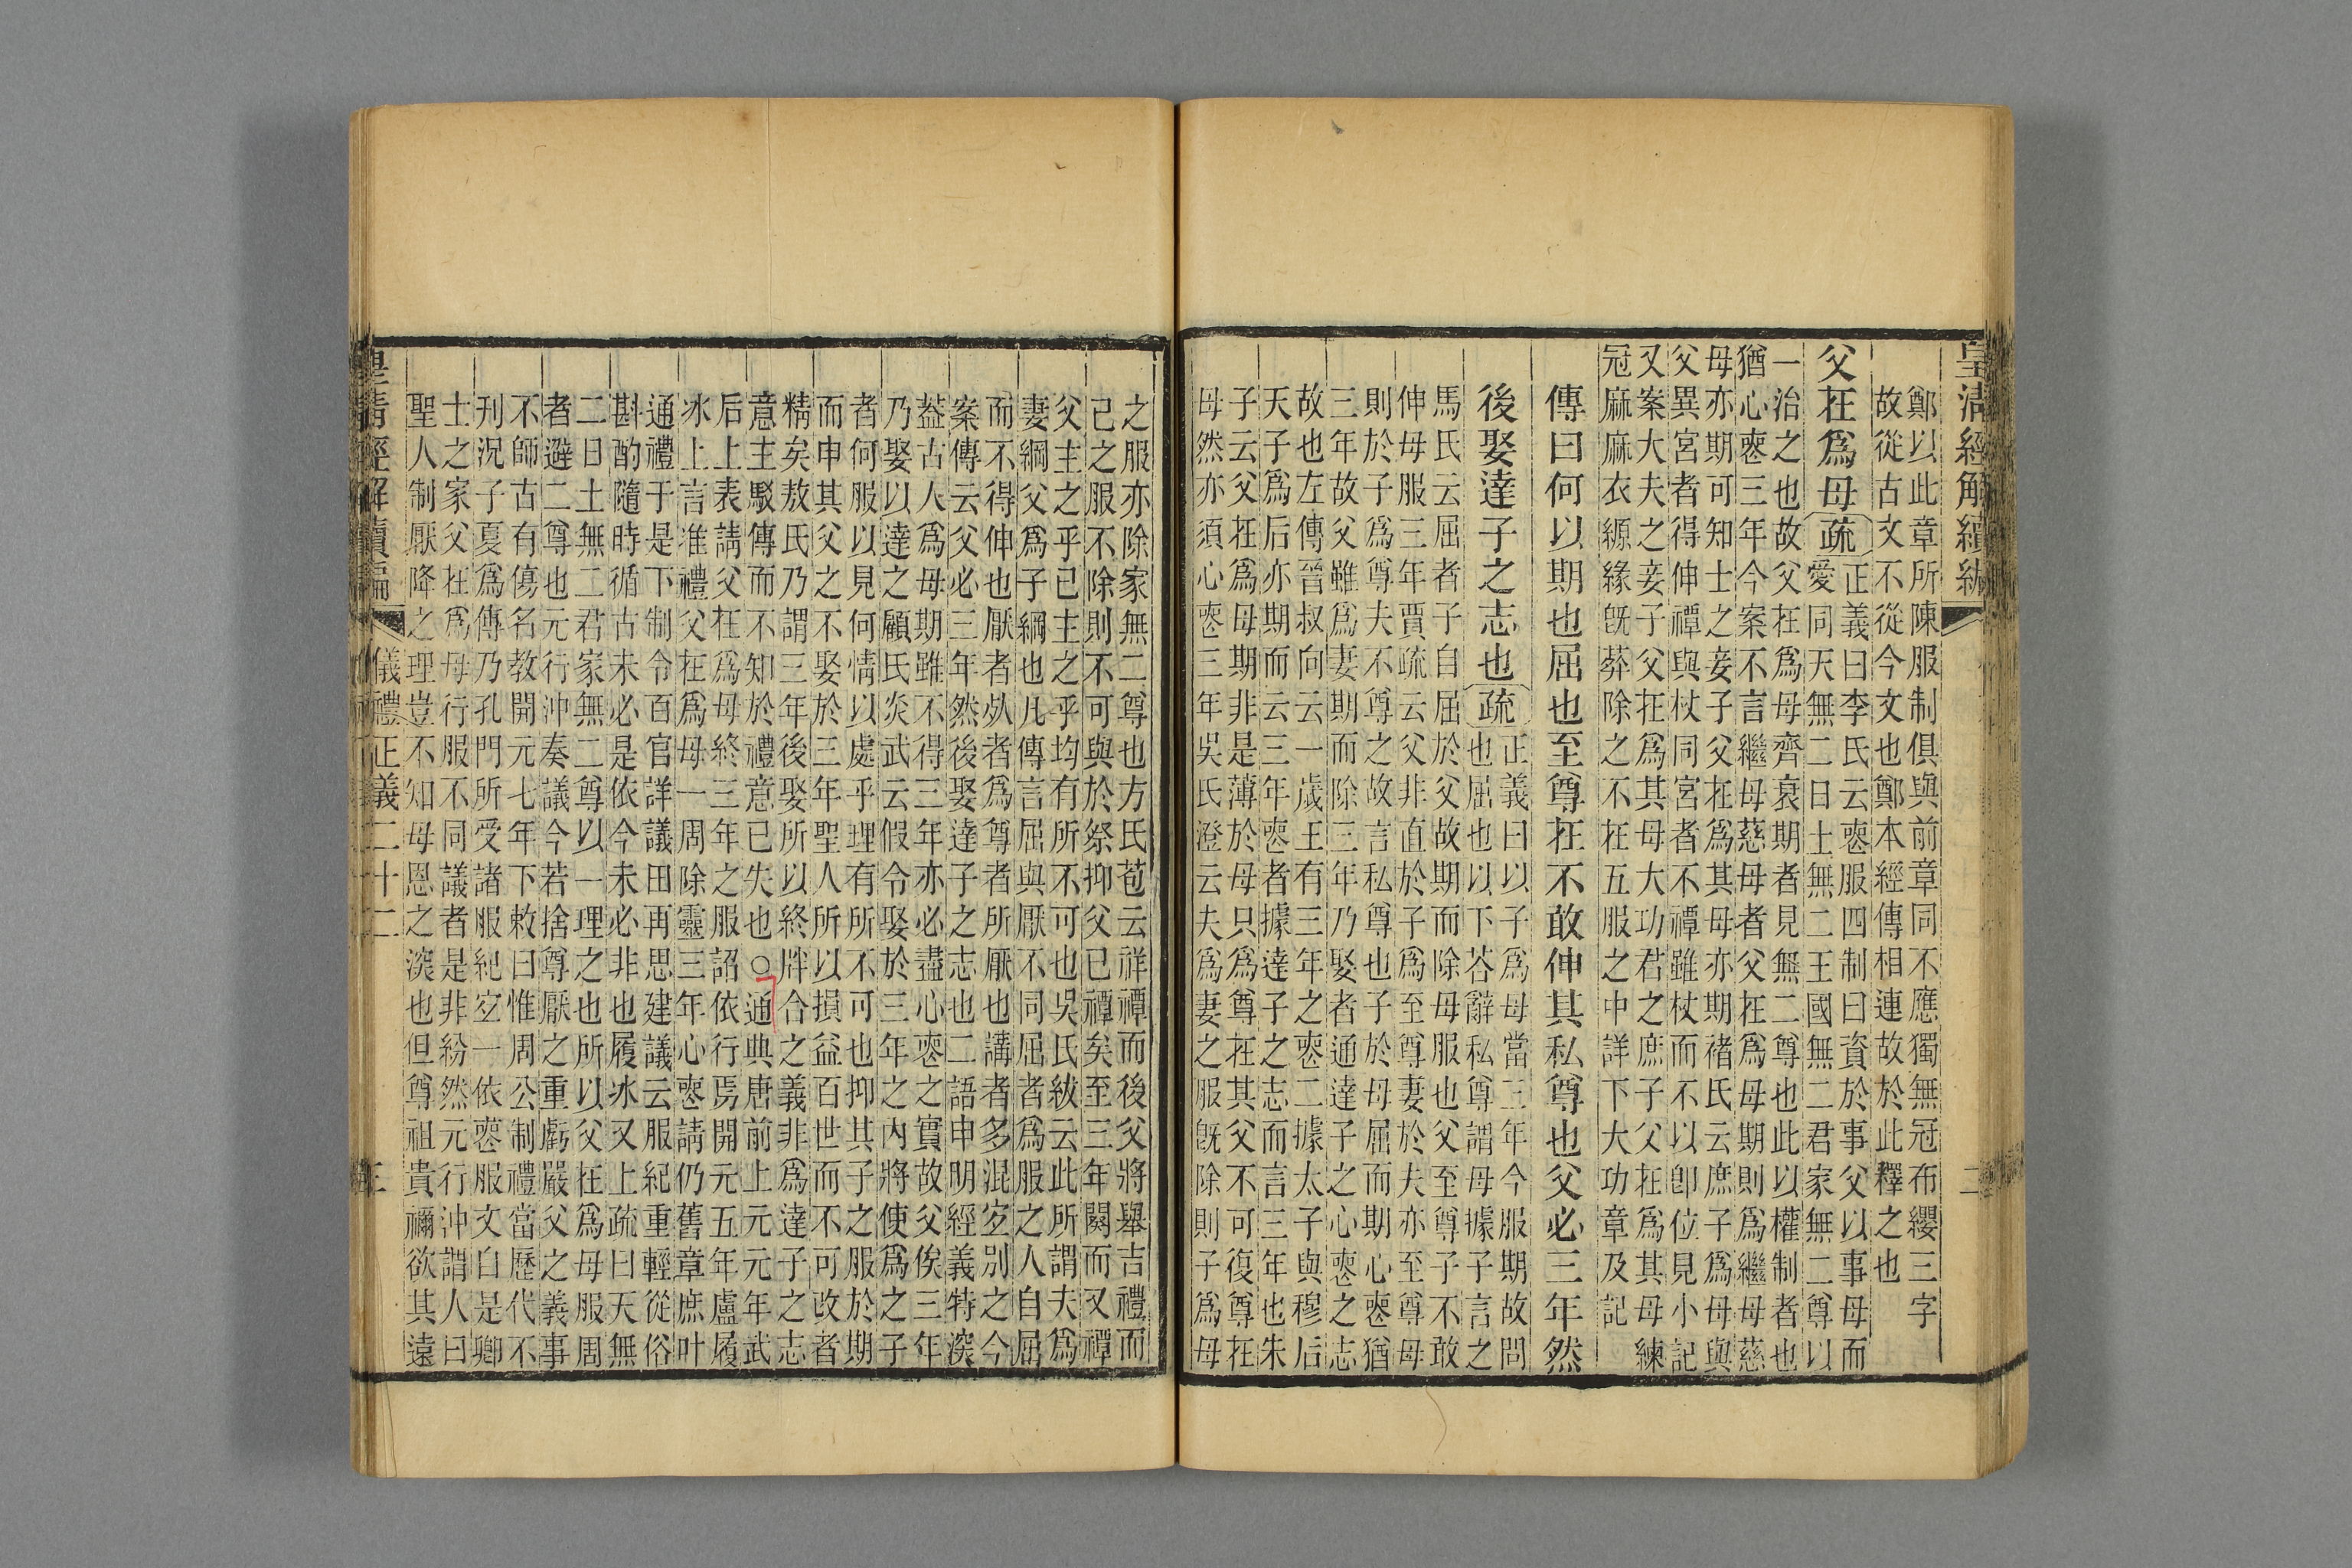 皇淸經解續編
二
鄭以此章所陳服制俱與前章同不應獨無冠布纓三字
故從古文不從今文也鄭本經傳相連故於此釋之也
父在爲母疏正義曰李氏云喪服四制曰資於事父以事母而
愛同天無二日土無二王國無二君家無二尊以
一治之也故父在爲母齊衰期者見無二尊也此以權制者也
猶心喪三年今案不言繼母慈母者父在爲母期則爲繼母慈
母亦期可知士之妾子父在爲其母亦期褚氏云庶子爲母與
父異宮者得伸禫與杖同宮者不禫雖杖而不以卽位見小記
又案大夫之妾子父在爲其母大功君之庶子父在爲其母練
冠麻麻衣縓緣旣葬除之不在五服之中詳下大功章及記
傳曰何以期也屈也至尊在不敢伸其私尊也父必三年然
後娶達子之志也疏正義曰以子爲母當三年今服期故問
也屈也以下荅辭私尊謂母據子言之
馬氏云屈者子自屈於父故期而除母服也父至尊子不敢
伸母服三年賈疏云父非直於子爲至尊妻於夫亦至尊母
則於子爲尊夫不尊之故言私尊也子於母屈而期心喪猶
三年故父雖爲妻期而除三年乃娶者通達子之心喪之志
故也左傳晉叔向云一歲王有三年之喪二據太子與穆后
天子爲后亦期而云三年喪者據達子之志而言三年也朱
子云父在爲母期非是薄於母只爲尊在其父不可復尊在
母然亦須心喪三年吳氏澄云夫爲妻之服旣除則子爲母
之服亦除家無二尊也方氏苞云祥禫而後父將舉吉禮而
己之服不除則不可與於祭抑父已禫矣至三年闋而又禫
父主之乎已主之乎均有所不可也吳氏紱云此所謂夫爲
妻綱父爲子綱也凡傳言屈與厭不同屈者爲服之人自屈
而不得伸也厭者㒸者爲尊者所厭也講者多混宜別之今
案傳云父必三年然後娶達子之志也二語申明經義特深
葢古人爲母期雖不得三年亦必盡心喪之實故父俟三年
乃娶以達之顧氏炎武云假令娶於三年之內將使爲之子
者何服以見何情以處乎理有所不可也抑其子之服於期
而申其父之不娶於三年聖人所以損益百世而不可改者
精矣敖氏乃謂三年後娶所以終牉合之義非爲達子之志
意主駁傳而不知於禮意已失也○通典唐前上元元年武
后上表請父在爲母終三年之服詔依行焉開元五年盧履
冰上言准禮父在爲母一周除靈三年心喪請仍舊章庶叶
通禮于是下制令百官詳議田再思建議云服紀重輕從俗
斟酌隨時循古未必是依今未必非也履冰又上疏曰天無
二日土無二君家無二尊以一理之也所以父在爲母服周
者避二尊也元行沖奏議今若捨尊厭之重虧嚴父之義事
不師古有傷名教開元七年下敕曰惟周公制禮當歷代不
刊況子夏爲傳乃孔門所受諸服紀宜一依喪服文自是卿
士之家父在爲母行服不同議者是非紛然元行沖謂人曰
聖人制厭降之理豈不知母恩之深也但尊祖貴禰欲其遠
皇淸經解續編
儀禮正義二十二
三